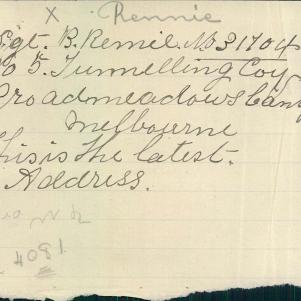 X Rennie
Sgt. B. Remie. No 3170
No 5. Tunnelling Coy
Broadmeadows Camp
Melbourne
This is the latest.
Address.
4081